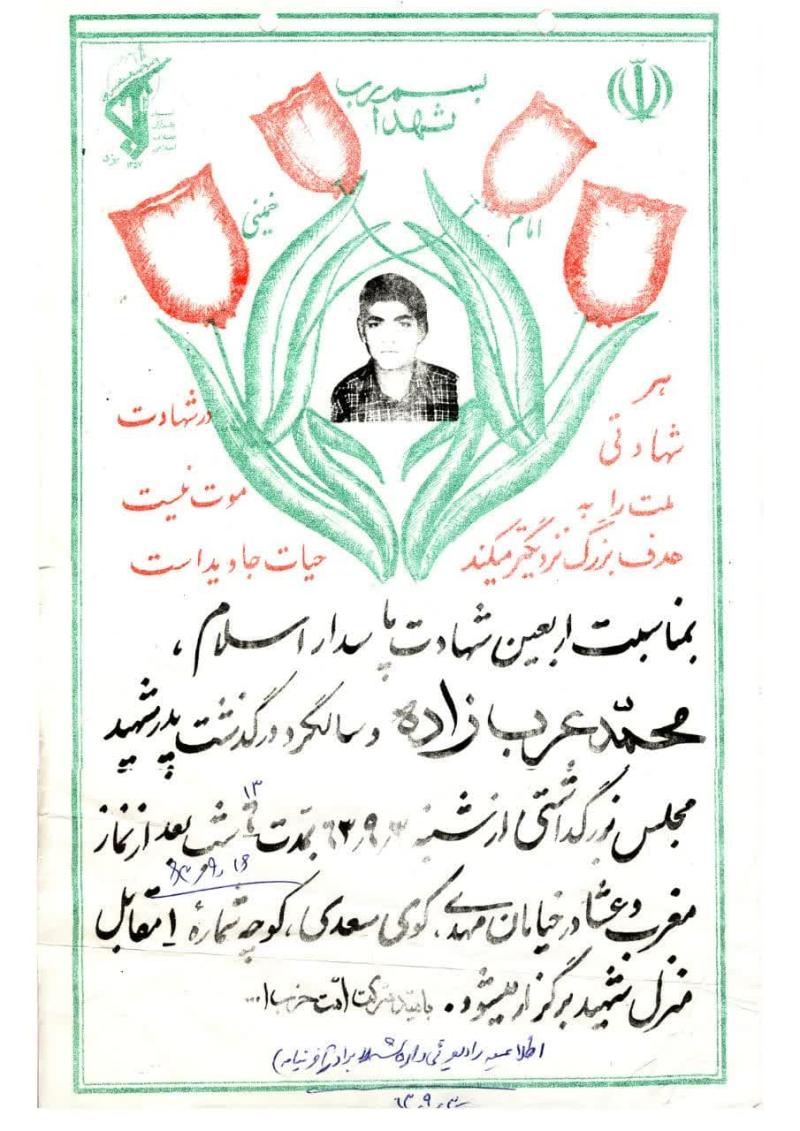 بسم رب
شهدا
امام
خمینی
هر
شهادتی
ملت را به
هدف بزرگ نزدیکتر میکند
در شهادت
موت نیست
حیات جاوید است
بمناسبت اربعین شهادت پاسدار اسلام،
محمّد عرب زاده و سالگرد درگذشت پدر شهید
۱۳
مجلس بزرگداشتی از شنبه بمدّت شب بعد از نماز
مغرب و عشا در خیابان مهدی، کوی سعدی، کوچه شمارهٔ ۱ مقابل
منزل شهید برگزار میشود. امّت حزب ا...